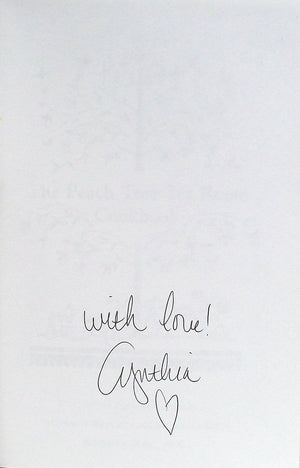 The Peach Tree Tea Room
Cookbook
with love!
Cynthia